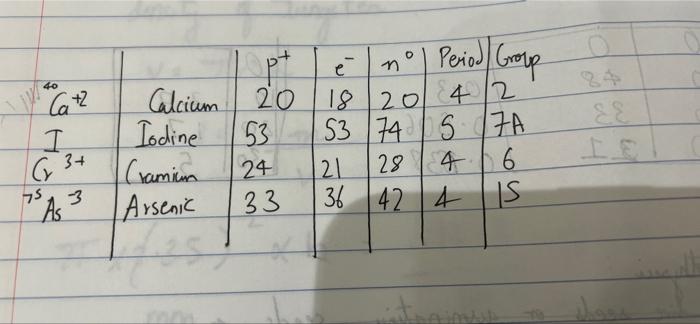 p+ e- n° Period Group
40Ca+2 Calcium 20 18 20 4 2
I Iodine 53 53 74 5 7A
Cr3+ Cramium 24 21 28 4 6
75As-3 Arsenic 33 36 42 4 15